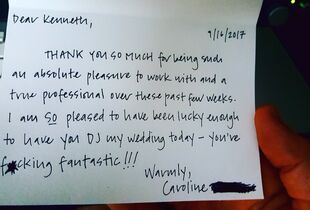 Dear Kenneth,
9/16/2017
THANK YOU SO MUCH for being such
an absolute pleasure to work with and a
true professional over these past few weeks.
I am SO pleased to have been lucky enough
to have you DJ my wedding today - you're
f cking fantastic!!!
Warmly,
Caroline